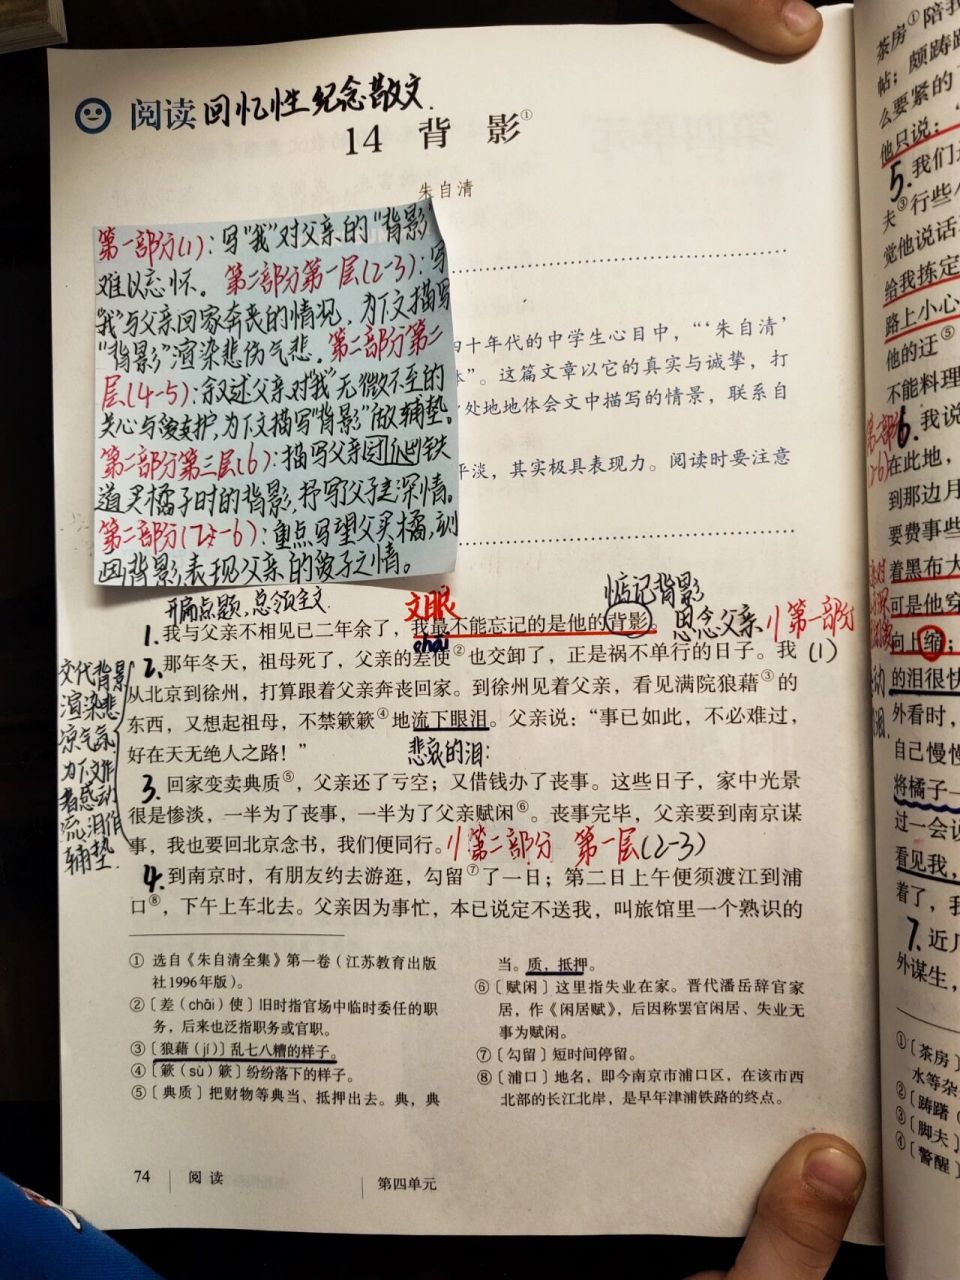 阅读 回忆性纪念散文.
14 背影①
朱自清
第一部分(1):写"我"对父亲的"背影
难以忘怀。第二部分第一层(2-3):写
"我"与父亲回家奔丧的情况,为下文描写
"背影"渲染悲伤气悲.第二部分第二
层(4-5):叙述父亲对"我"无微不至的
关心与爱护,为下文描写"背影"做辅垫。
第二部分第三层(6):描写父亲铁
道买橘子时的背影,抒写了父子深情。
第二部分(2-6):重点写望父买橘,刻
画背影,表现父亲的爱子之情。
四十年代的中学生心目中,"'朱自清'
"。这篇文章以它的真实与诚挚,打
处地地体会文中描写的情景,联系自
平淡,其实极具表现力。阅读时要注意
开扁点题,总领全文. 文眼 惦记背影
1.我与父亲不相见已二年余了,我最不能忘记的是他的背影。思念父亲〢第一部分
(1)
chāi
2.那年冬天,祖母死了,父亲的差使②也交卸了,正是祸不单行的日子。我
从北京到徐州,打算跟着父亲奔丧回家。到徐州见着父亲,看见满院狼藉③的
东西,又想起祖母,不禁簌簌④地流下眼泪。父亲说:"事已如此,不必难过,
好在天无绝人之路!" 悲哀的泪:
交代背影
渲染悲
凉气氛
为下文作
者感动
流泪作
辅垫.
3.回家变卖典质⑤,父亲还了亏空;又借钱办了丧事。这些日子,家中光景
很是惨淡,一半为了丧事,一半为了父亲赋闲⑥。丧事完毕,父亲要到南京谋
事,我也要回北京念书,我们便同行。〢第二部分 第一层(2-3)
4.到南京时,有朋友约去游逛,勾留⑦了一日;第二日上午便须渡江到浦
口⑧,下午上车北去。父亲因为事忙,本已说定不送我,叫旅馆里一个熟识的
① 选自《朱自清全集》第一卷(江苏教育出版
社1996年版)。
② 〔差(chāi)使〕旧时指官场中临时委任的职
务,后来也泛指职务或官职。
③ 〔狼藉(jí)〕乱七八糟的样子。
④ 〔簌(sù)簌〕纷纷落下的样子。
⑤ 〔典质〕把财物等典当、抵押出去。典,典
当。质,抵押。
⑥ 〔赋闲〕这里指失业在家。晋代潘岳辞官家
居,作《闲居赋》,后因称罢官闲居、失业无
事为赋闲。
⑦ 〔勾留〕短时间停留。
⑧ 〔浦口〕地名,即今南京市浦口区,在该市西
北部的长江北岸,是早年津浦铁路的终点。
74 阅读 第四单元
茶房①陪我
帖;颇踌
么要紧的
他只说:
5.我们
夫③行些小
觉他说话
给我拣定
路上小心
他的迂⑤
不能料理
6.我说
在此地,
到那边月
要费事些
着黑布大
可是他穿
向上缩;
的泪很快
外看时,
自己慢慢
将橘子一
过一会说
看见我,
着了,我
7.近几
外谋生,
①〔茶房〕
水等杂
②〔踌躇
③〔脚夫〕
④〔警醒〕